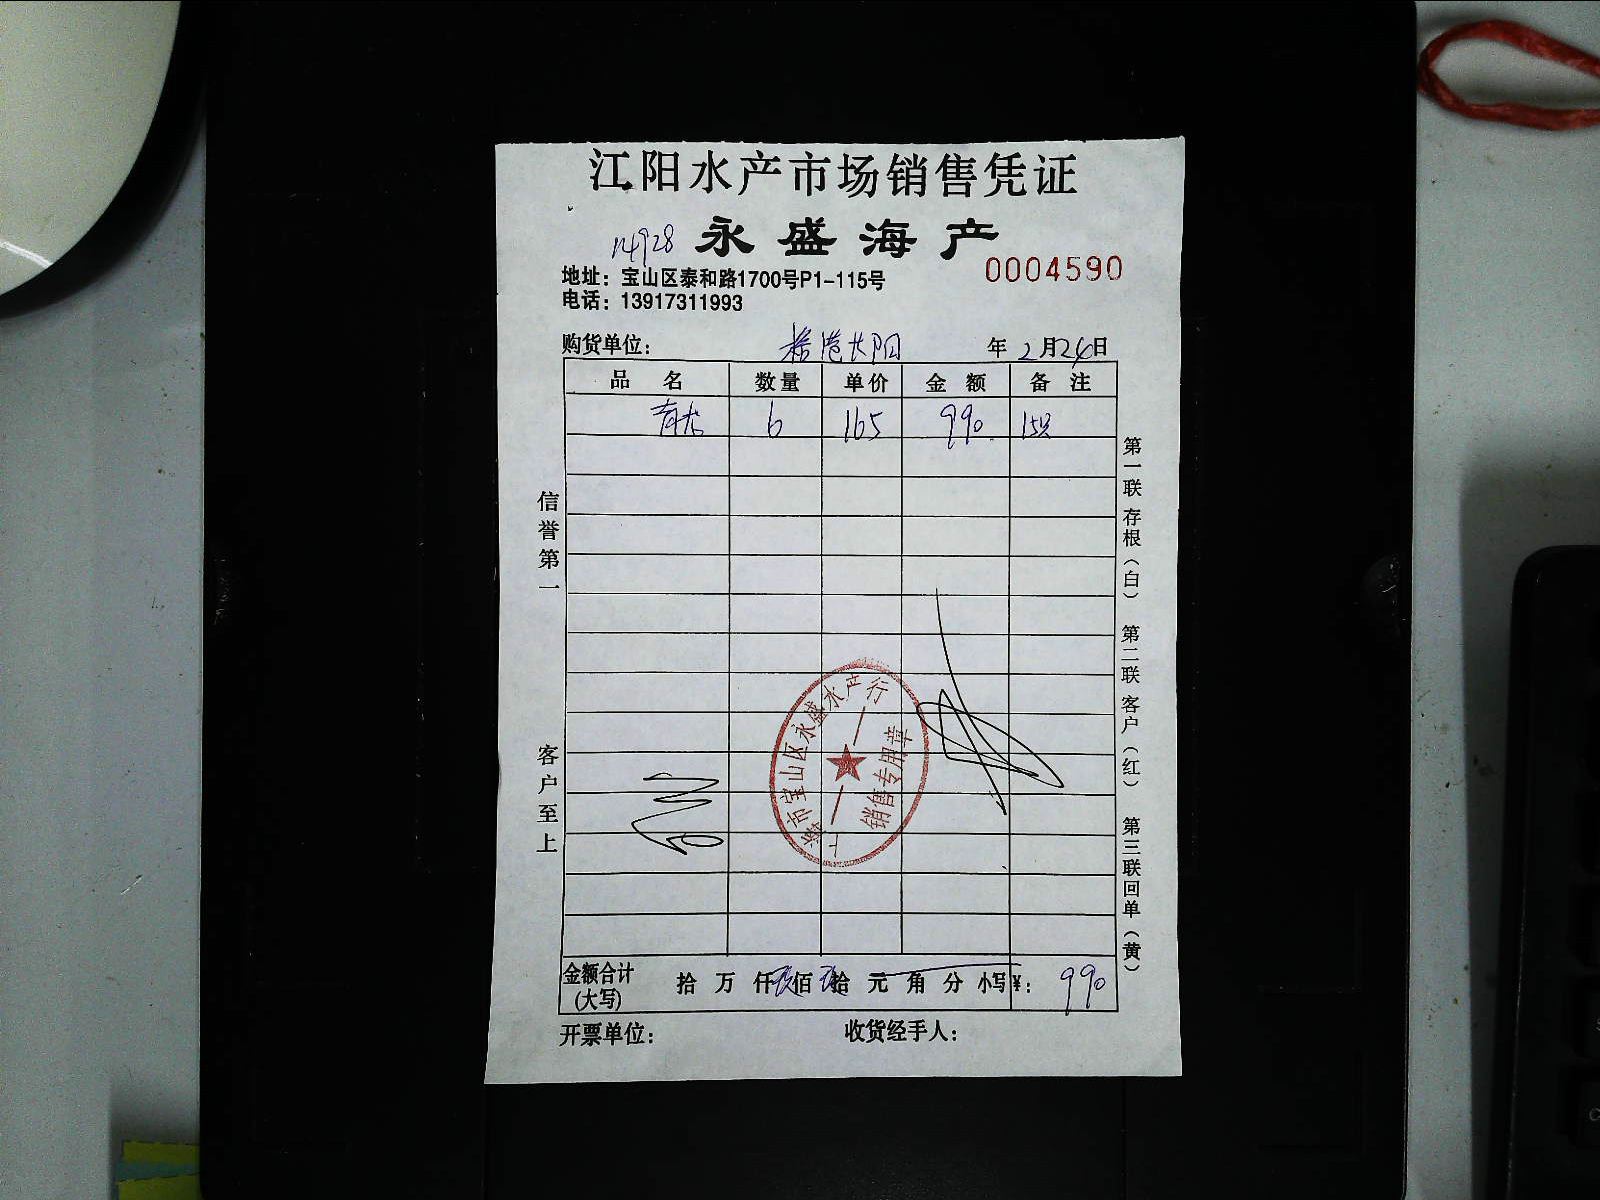 江阳水产市场销售凭证
14928 永盛海产
0004590
地址：宝山区泰和路1700号P1-115号
电话：13917311993
购货单位： 年 2月24日
品名 数量 单价 金额 备注
6 165 990 15只
信誉第一
客户至上
第一联 存根（白） 第二联 客户（红） 第三联 回单（黄）
上海市宝山区永盛水产行
销售专用章
金额合计（大写） 拾 万 仟 玖佰 玖拾 元 角 分 小写¥： 990
开票单位： 收货经手人：